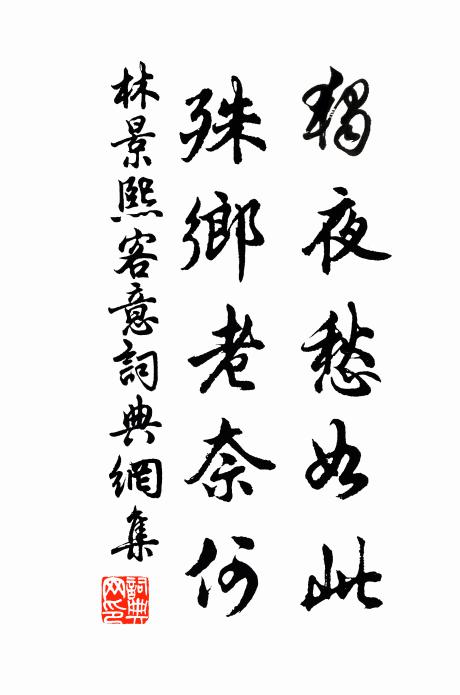 獨夜愁如此
殊鄉老奈何
林景熙客意詞典網集
詞典网印